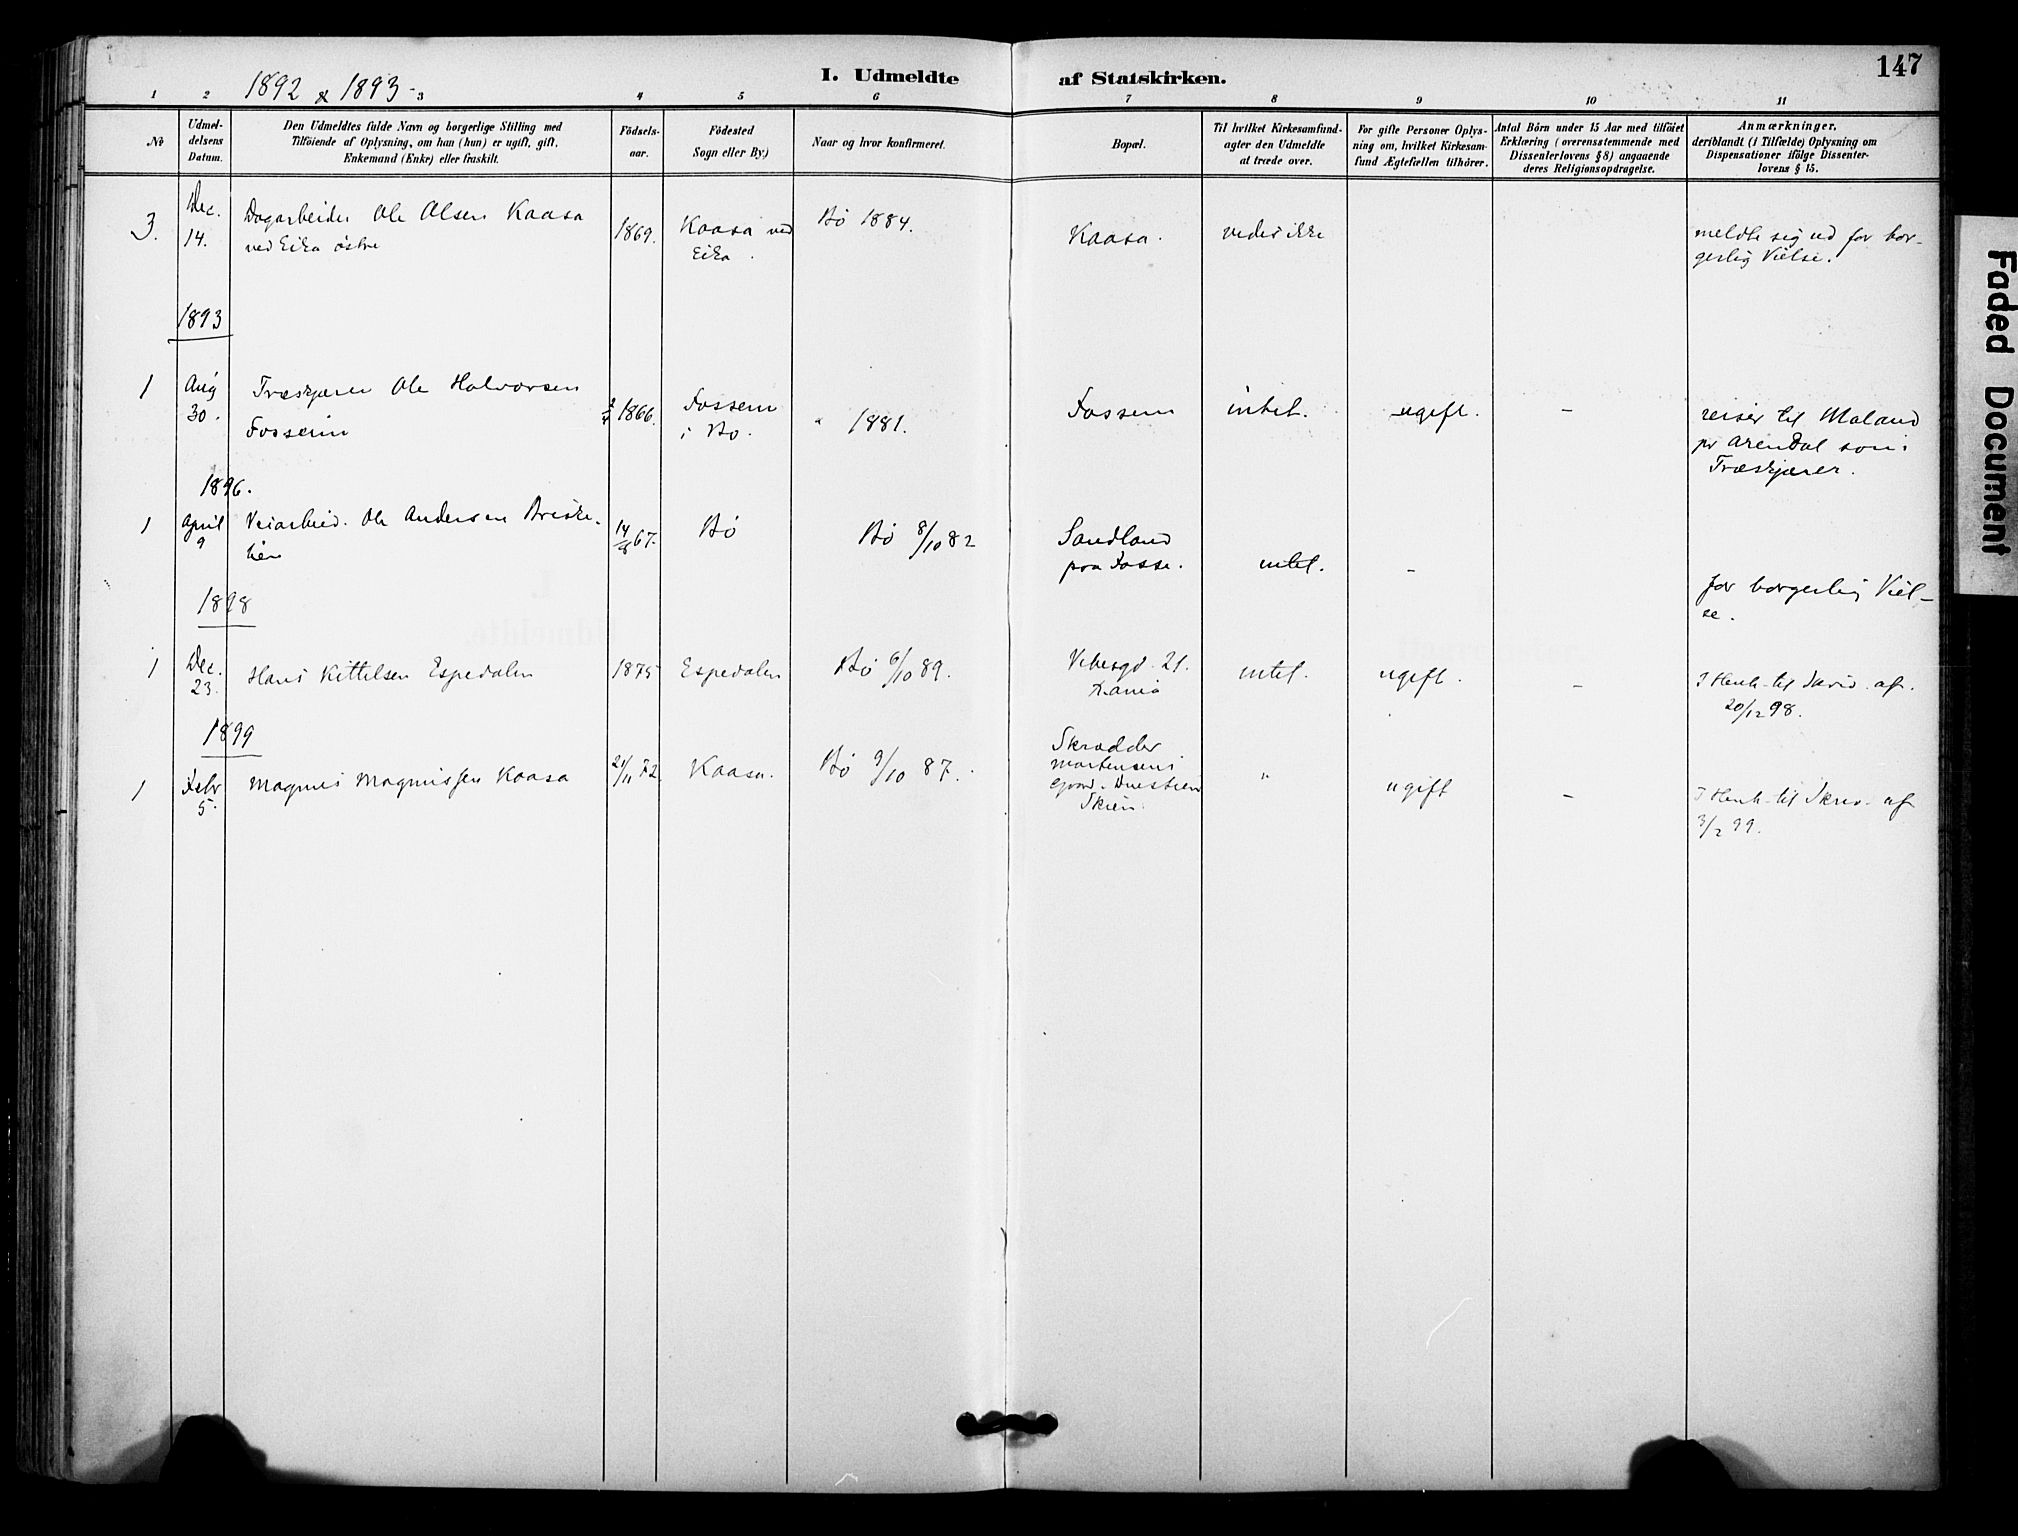 147
1892 & 1893-
I. Udmeldte af Statskirken.
1 2 3 4 5 6 7 8 9 10 11
No
Udmel-
delsens
Datum.
Den Udmeldtes fulde Navn og borgerlige Stilling med
Tilföiende af Oplysning, om han (hun) er ugift, gift,
Enkemand (Enke) eller fraskilt.
Födsels-
aar.
Födested
Sogn eller By.)
Naar og hvor konfirmeret.
Bopæl.
Til hvilket Kirkesamfund-
agter den Udmeldte
at træde over.
For gifte Personer Oplys-
ning om, hvilket Kirkesam-
fund Ægtefællen tilhörer.
Antal Börn under 15 Aar med tilföiet
Erklæring (overensstemmende med
Dissenterlovens § 8) angaaende
deres Religionsopdragelse.
Anmærkninger,
deriblandt (i Tilfælde) Oplysning om
Dispensationer ifölge Dissenter-
lovens § 15.
3.
Dec.
14.
Dagarbeider Ole Olsen Kaasa
ved Eika östre
1869.
Kaasa ved
Eika.
Bö 1884.
Kaasa.
vedes ikke
meldte sig ud for bor-
gerlig Vielse.
1893
1
Aug
30.
Træskjærer Ole Halvorsen
Fossem
1866.
Fossem
i Bö.
" 1881.
Fossem
intet.
ugift.
–
reiser til Moland
pr Arendal som
Træskjærer.
1896.
1
April
9
Veiarbeid. Ole Andersen
67.
Bö
Bö 8/10 82
Sandland
paa Fosse.
intet.
–
for borgerlig Viel-
se.
1898
1
Dec.
23.
Hans Kittelsen Espedalen
1875
Espedalen
Bö 6/10 89.
21.
intet.
ugift.
–
I Henh. til af.
20/12 98.
1899
1
Febr
5.
Magnus Magnussen Kaasa
21/11 72
Kaasa.
Bö 9/10 87.
Skrædder
Mortensens
Gaard.
Skien.
"
ugift
–
I Henh. til Skriv. af
3/2 99.
Faded Document